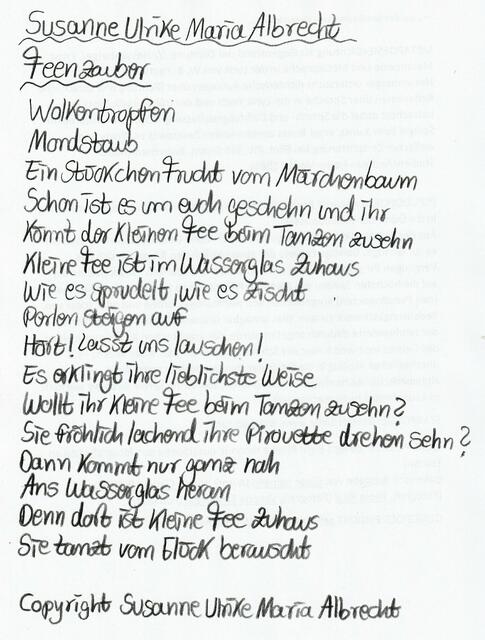 Susanne Ulrike Maria Albrecht
Feenzauber
Wolkentropfen
Mondstaub
Ein Stückchen Frucht vom Märchenbaum
Schon ist es um euch geschehn und ihr
Könnt der kleinen Fee beim Tanzen zusehn
Kleine Fee ist im Wasserglas zuhaus
Wie es sprudelt, wie es zischt
Perlen steigen auf
Hört! Lasst uns lauschen!
Es erklingt ihre lieblichste Weise
Wollt ihr kleine Fee beim Tanzen zusehn?
Sie fröhlich lachend ihre Pirouette drehen sehn?
Dann kommt nur ganz nah
Ans Wasserglas heran
Denn dort ist kleine Fee zuhaus
Sie tanzt vom Glück berauscht
Copyright Susanne Ulrike Maria Albrecht